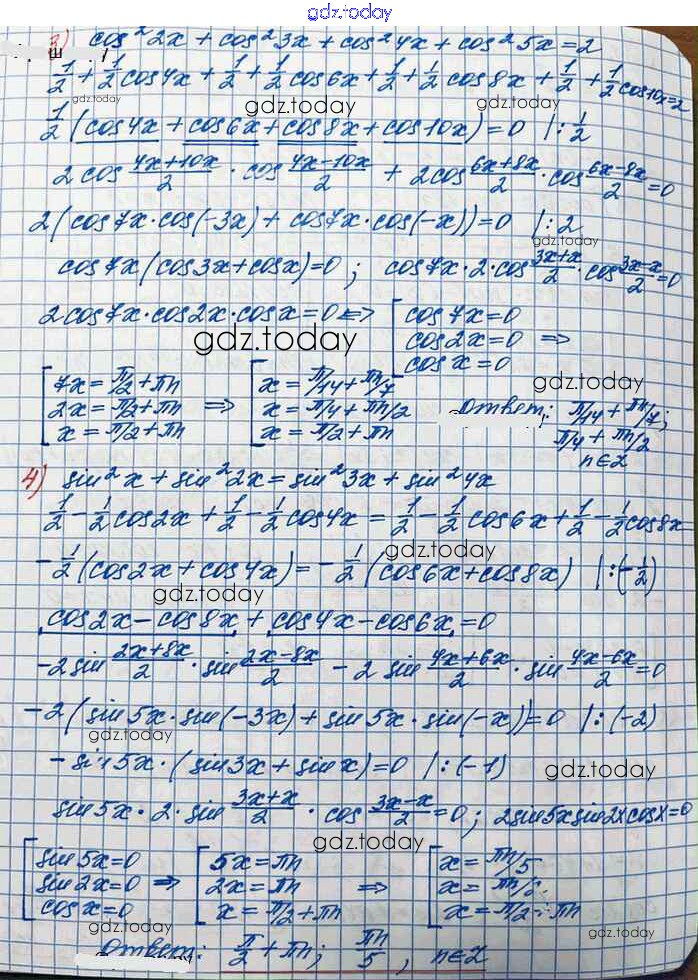 gdz.today
3) cos²2x + cos²3x + cos²4x + cos²5x = 2
1/2 + 1/2 cos4x + 1/2 + 1/2 cos6x + 1/2 + 1/2 cos8x + 1/2 + 1/2 cos10x = 2
gdz.today gdz.today
1/2 (cos4x + cos6x + cos8x + cos10x) = 0 |: 1/2
2cos (4x+10x)/2 · cos (4x-10x)/2 + 2cos (6x+8x)/2 · cos (6x-8x)/2 = 0
2(cos7x·cos(-3x) + cos7x·cos(-x)) = 0 |: 2
gdz.today
cos7x(cos3x + cosx) = 0 ; cos7x·2·cos (3x+x)/2 · cos (3x-x)/2 = 0
2cos7x·cos2x·cosx = 0 <=> [ cos7x = 0
gdz.today
cos2x = 0 =>
cosx = 0
[ 7x = π/2 + πn => [ x = π/14 + πn/7
gdz.today
2x = π/2 + πn x = π/4 + πn/2 Ответ: π/14 + πn/7;
x = π/2 + πn x = π/2 + πn π/4 + πn/2
n∈Z
4) sin²x + sin²2x = sin²3x + sin²4x
1/2 - 1/2 cos2x + 1/2 - 1/2 cos4x = 1/2 - 1/2 cos6x + 1/2 - 1/2 cos8x
gdz.today
-1/2 (cos2x + cos4x) = -1/2 (cos6x + cos8x) |: (-1/2)
gdz.today
cos2x - cos8x + cos4x - cos6x = 0
-2sin (2x+8x)/2 · sin (2x-8x)/2 - 2 sin (4x+6x)/2 · sin (4x-6x)/2 = 0
-2(sin5x·sin(-3x) + sin5x·sin(-x)) = 0 |: (-2)
gdz.today
-sin5x·(sin3x + sinx) = 0 |: (-1)
gdz.today
sin5x·2·sin (3x+x)/2 · cos (3x-x)/2 = 0 ; 2sin5xsin2xcosx = 0
gdz.today
[ sin5x = 0 [ 5x = πn [ x = πn/5
sin2x = 0 => 2x = πn => x = πn/2
cosx = 0 x = π/2 + πn x = π/2 + πn
gdz.today gdz.today
Ответ: π/2 + πn; πn/5, n∈Z